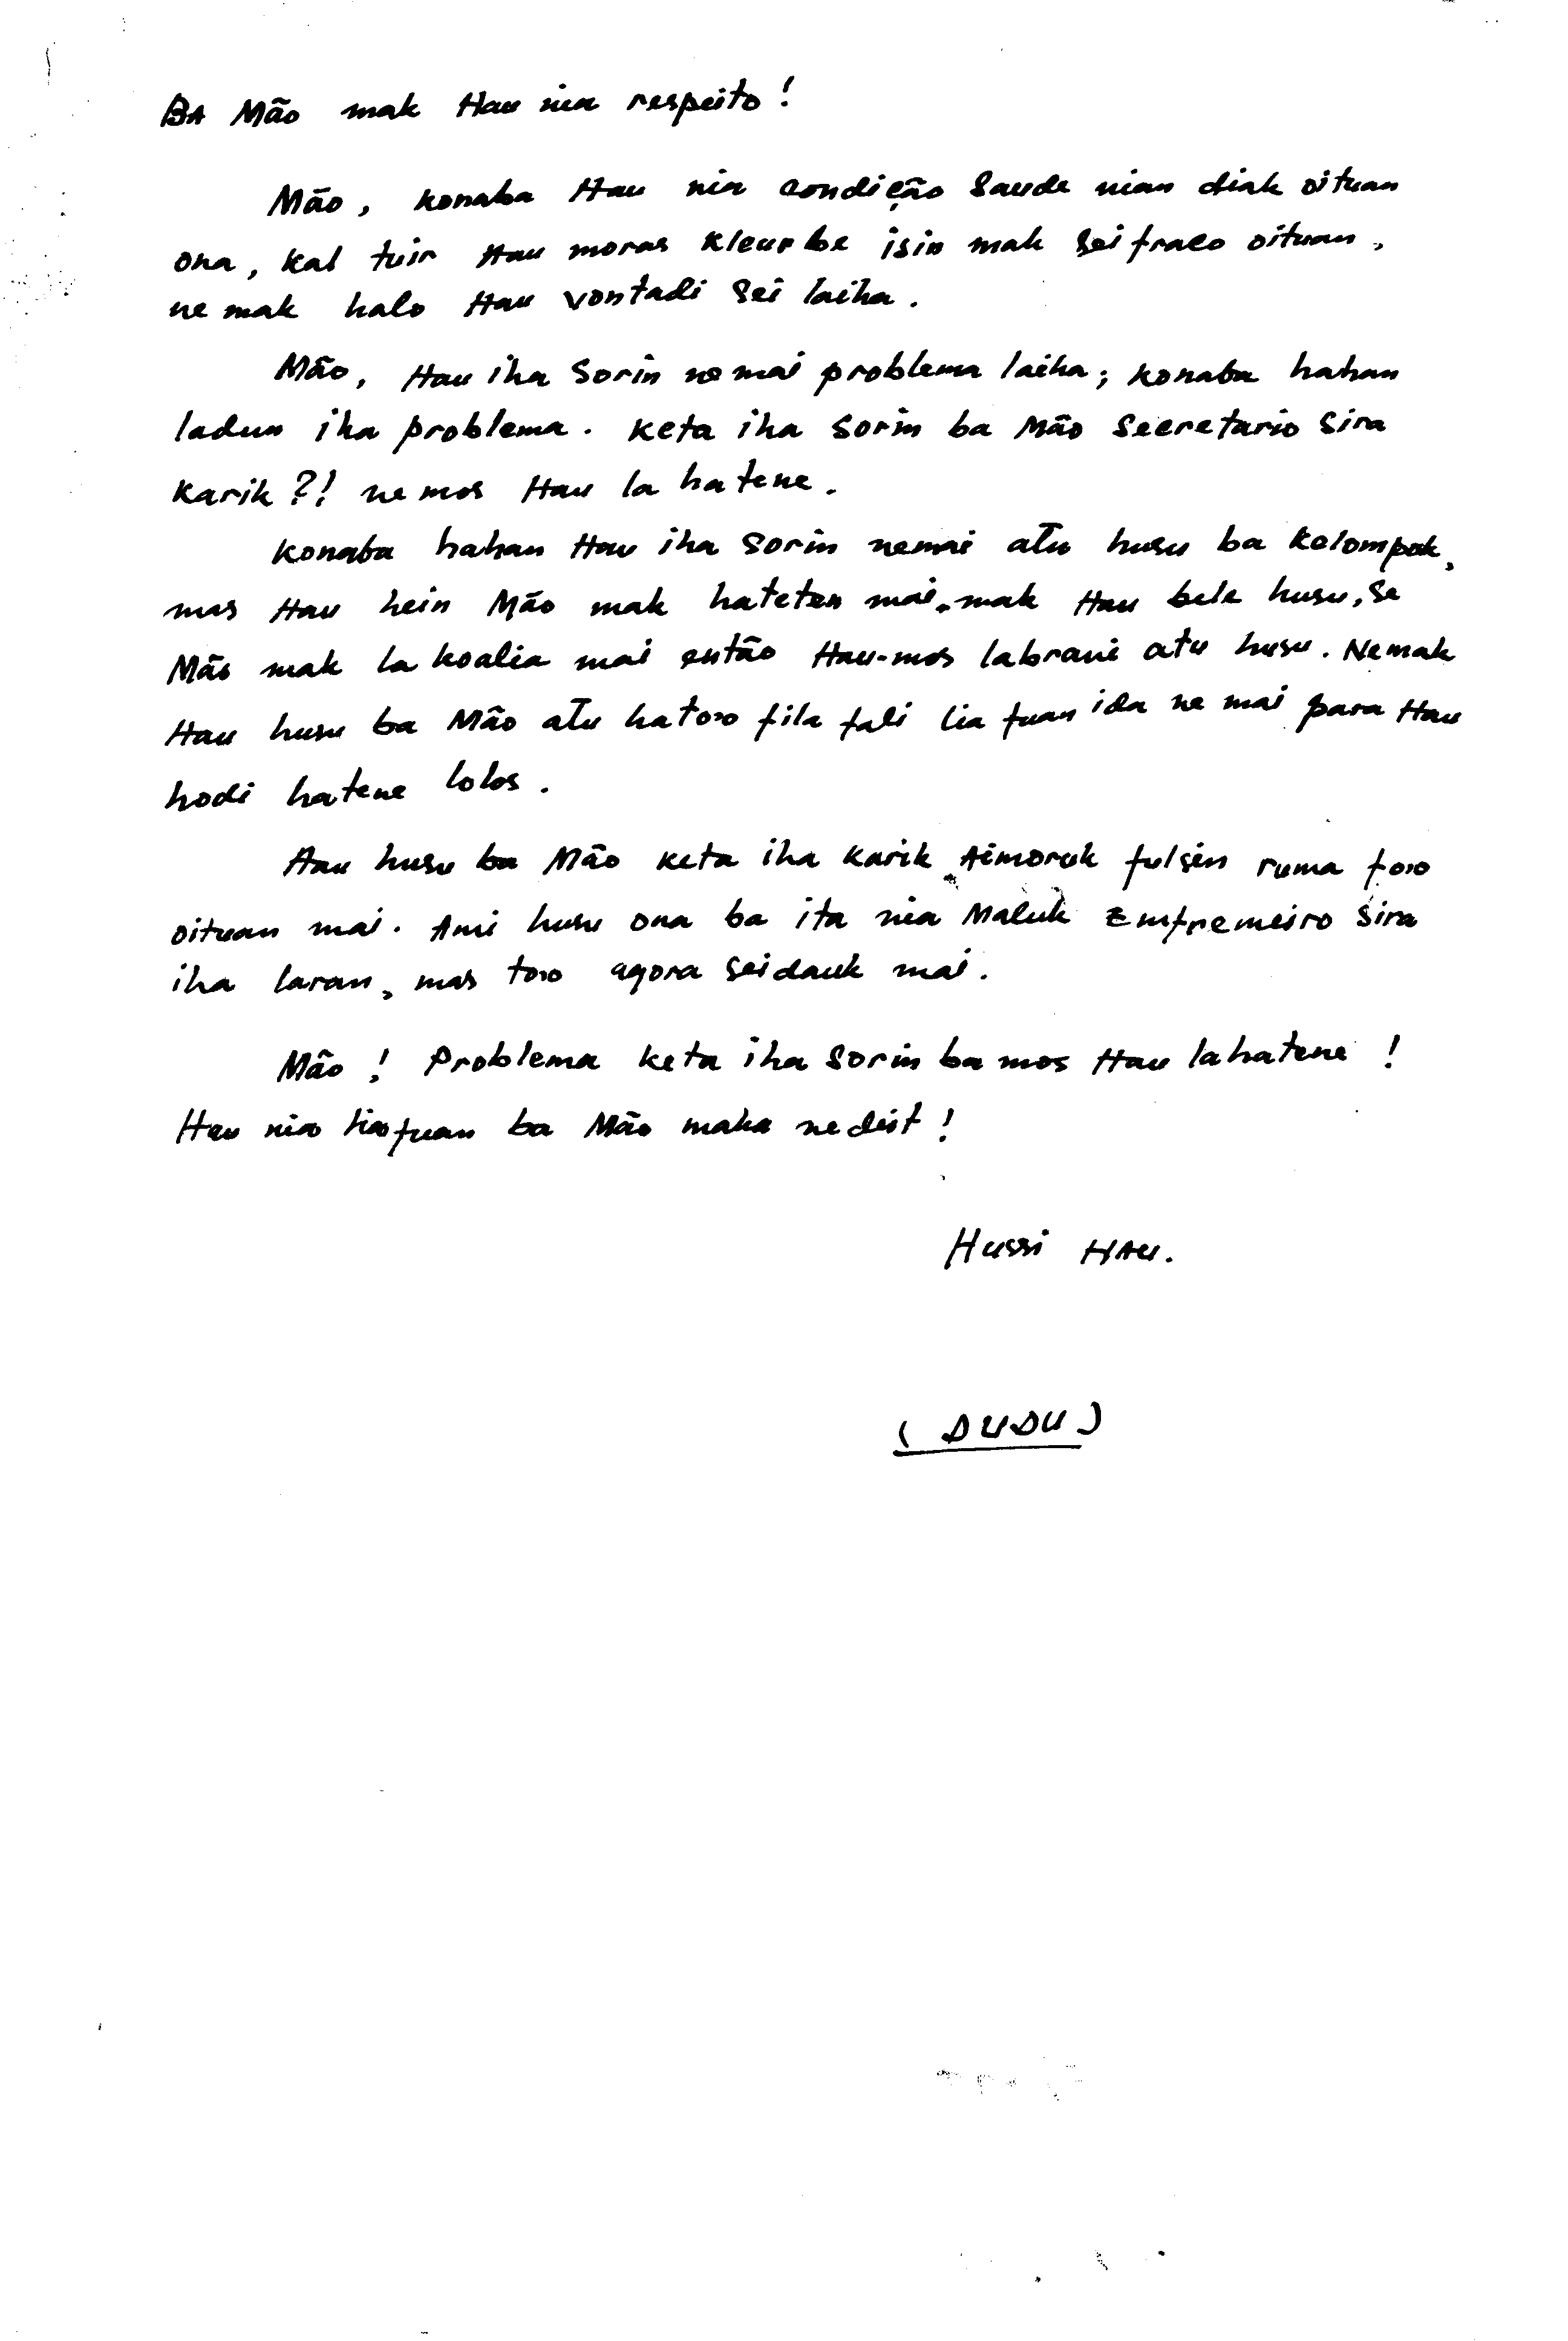 BA Mão mak Hau nia respeito!
Mão, konaba Hau nia condição Saude nian diak oituan
ona, kal tuir Hau moras kleur be isin mak sei fraco oituan,
ne mak halo Hau vontadi sei laiha.
Mão, Hau iha sorin ne mai problema laiha; konaba hahan
ladun iha problema. keta iha sorin ba Mão Secretario sira
karik?! ne mos Hau la hatene.
konaba hahan Hau iha sorin nemai atu husu ba kelompok,
mas Hau hein Mão mak hateten mai, mak Hau bele husu, se
Mão mak la koalia mai então Hau-mos labrani atu husu. Nemak
Hau husu ba Mão atu hato'o fila fali lia fuan ida ne mai para Hau
hodi hatene lolos.
Hau husu ba Mão keta iha karik Aimoruk fulsin ruma fo'o
oituan mai. Ami husu ona ba ita nia Maluk Emfremeiro sira
iha laran, mas to'o agora seidauk mai.
Mão! Problema keta iha sorin ba mos Hau lahatene!
Hau nia liafuan ba Mão maka ne deit!
Hussi HAU.
(DUDU)